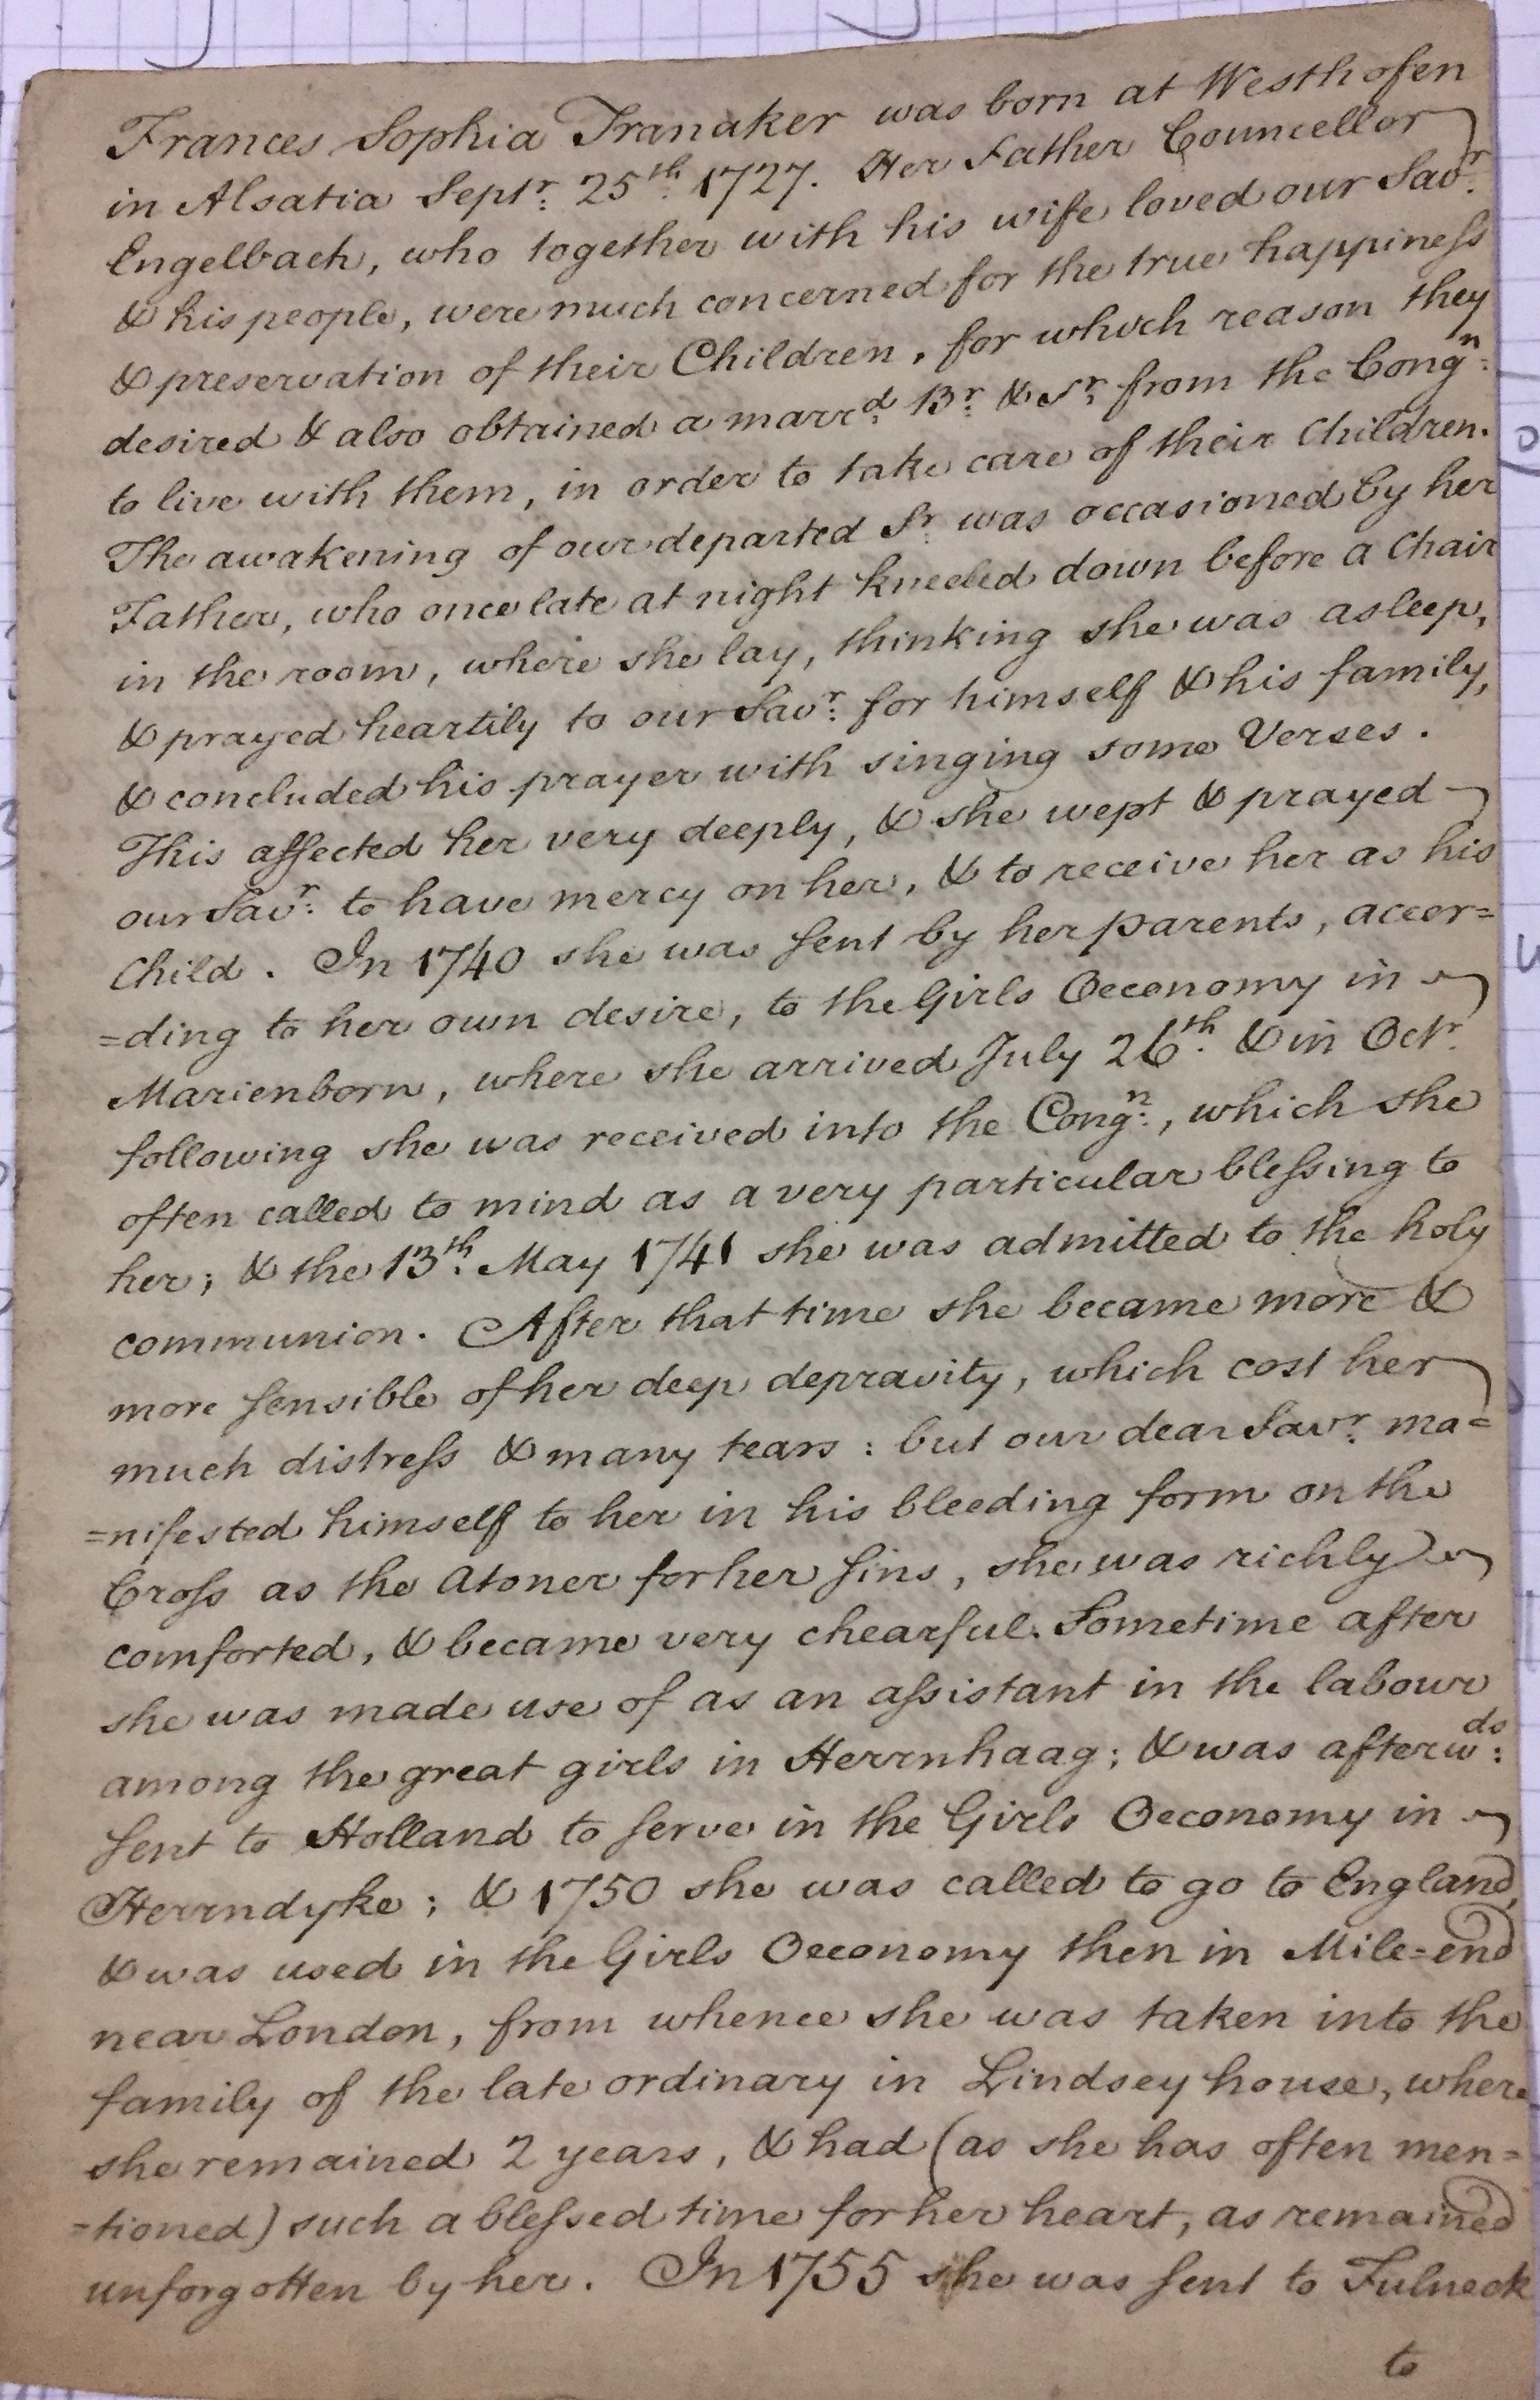 Frances Sophia Tranaker was born at Westhofen
in Alsatia Septr: 25th: 1727. Her Father Councellor
Engelbach, who together with his wife loved our Savr:
& his people, were much concerned for the true happiness
& preservation of their Children, for which reason they
desired & also obtained a marrd: Br: & Sr: from the Congn:
to live with them, in order to take care of their Children.
The awakening of our departed Sr: was occasioned by her
Father, who once late at night kneeled down before a Chair
in the room, where she lay, thinking she was asleep,
& prayed heartily to our Savr: for himself & his family,
& concluded his prayer with singing some Verses.
This affected her very deeply, & she wept & prayed
our Savr: to have mercy on her, & to receive her as his
Child. In 1740 she was sent by her parents, accor=
=ding to her own desire, to the Girls Oeconomy in
Marienborn, where she arrived July 26th: & in Octr:
following she was received into the Congn:, which she
often called to mind as a very particular blessing to
her; & the 13th: May 1741 she was admitted to the holy
communion. After that time she became more &
more sensible of her deep depravity, which cost her
much distress & many tears: but our dear Savr: ma=
=nifested himself to her in his bleeding form on the
Cross as the Atoner for her sins, she was richly
comforted, & became very chearful. Sometime after
she was made use of as an assistant in the labour
among the great girls in Herrnhaag; & was afterwds:
sent to Holland to serve in the Girls Oeconomy in
Herrndyke; & 1750 she was called to go to England,
& was used in the Girls Oeconomy then in Mile=end
near London, from whence she was taken into the
family of the late ordinary in Lindsey house, where
she remained 2 years, & had (as she has often men=
=tioned) such a blessed time for her heart, as remained
unforgotten by her. In 1755 she was sent to Fulneck
to